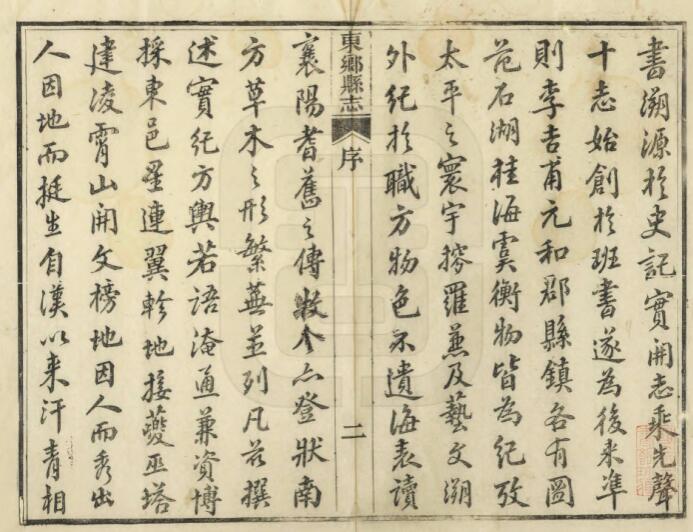 書溯源於史記實開志乘先聲
十志始創於班書遂為後来準
則李吉甫元和郡縣鎮各有圖
范石湖桂海虞衡物皆為紀攷
太平之寰宇搒羅兼及藝文溯
外紀於職方物色不遺海表讀
東鄉縣志
序
二
襄陽耆舊之傳數今亦登狀南
方草木之形繁蕪並列凡茲撰
述實紀方輿若語淹通兼資博
採東邑星連翼軫地接夔巫塔
建凌霄山開文榜地因人而秀出
人因地而挺生自漢以来汗青相